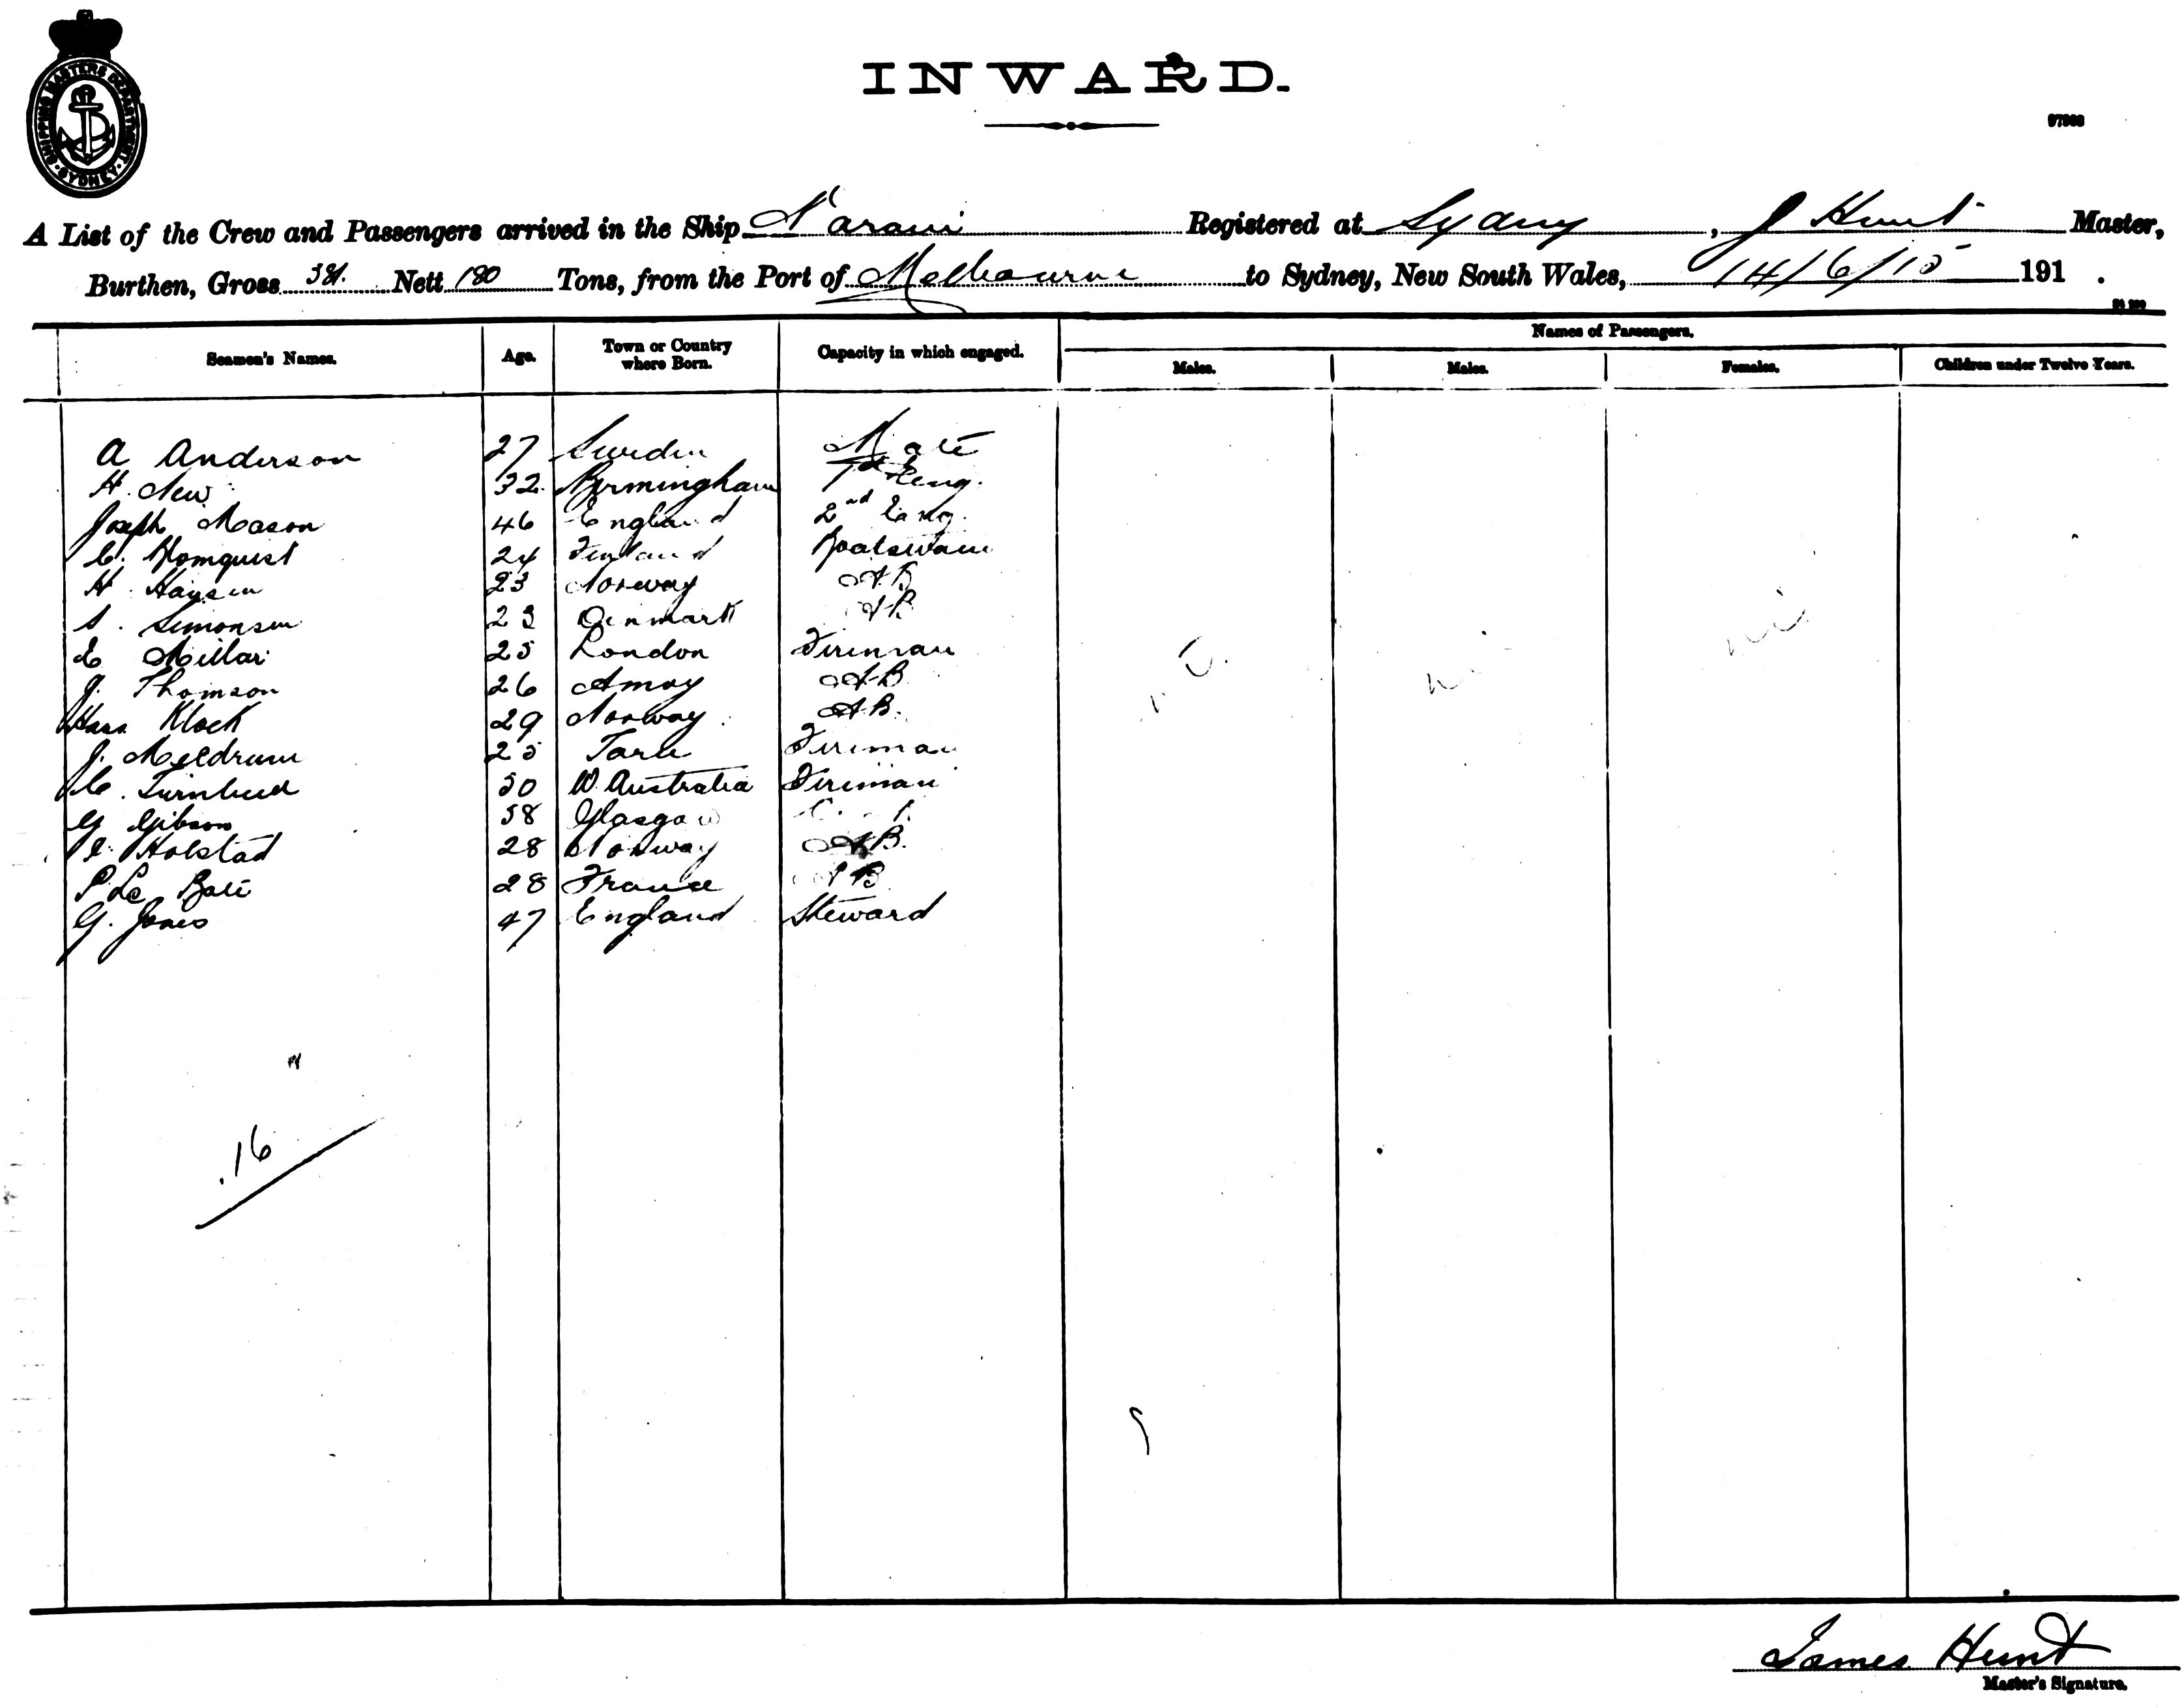 SHIPPING MASTERS DEPARTMENT SYDNEY
INWARD.
A List of the Crew and Passengers arrived in the Ship Narani Registered at Sydney, J Hunt Master,
Burthen, Gross 381. Nett 180 Tons, from the Port of Melbourne to Sydney, New South Wales, 14/6/15 191 .
Names of Passengers.
Seamen's Names. Age. Town or Country where Born. Capacity in which engaged. Males. Males. Females. Children under Twelve Years.
A Anderson 27 Sweden Mate
H. New 32 Birmingham 1st Eng.
Joseph Mason 46 England 2nd Eng.
C. Homquist 24 Finland Boatswain
H. Hansen 23 Norway A.B
S. Simonsen 23 Denmark A.B
E Millar 25 London Fireman
J. Thomson 26 Amoy A.B
Hans Klock 29 Norway A.B.
J. Meldrum 25 Fireman
C. Turnbull 50 W. Australia Fireman
G Gibson 58 Glasgow
E. Holstad 28 Norway A.B.
P Le 28 France A B
G. Jones 47 England Steward
nil nil nil
16
James Hunt
Master's Signature.